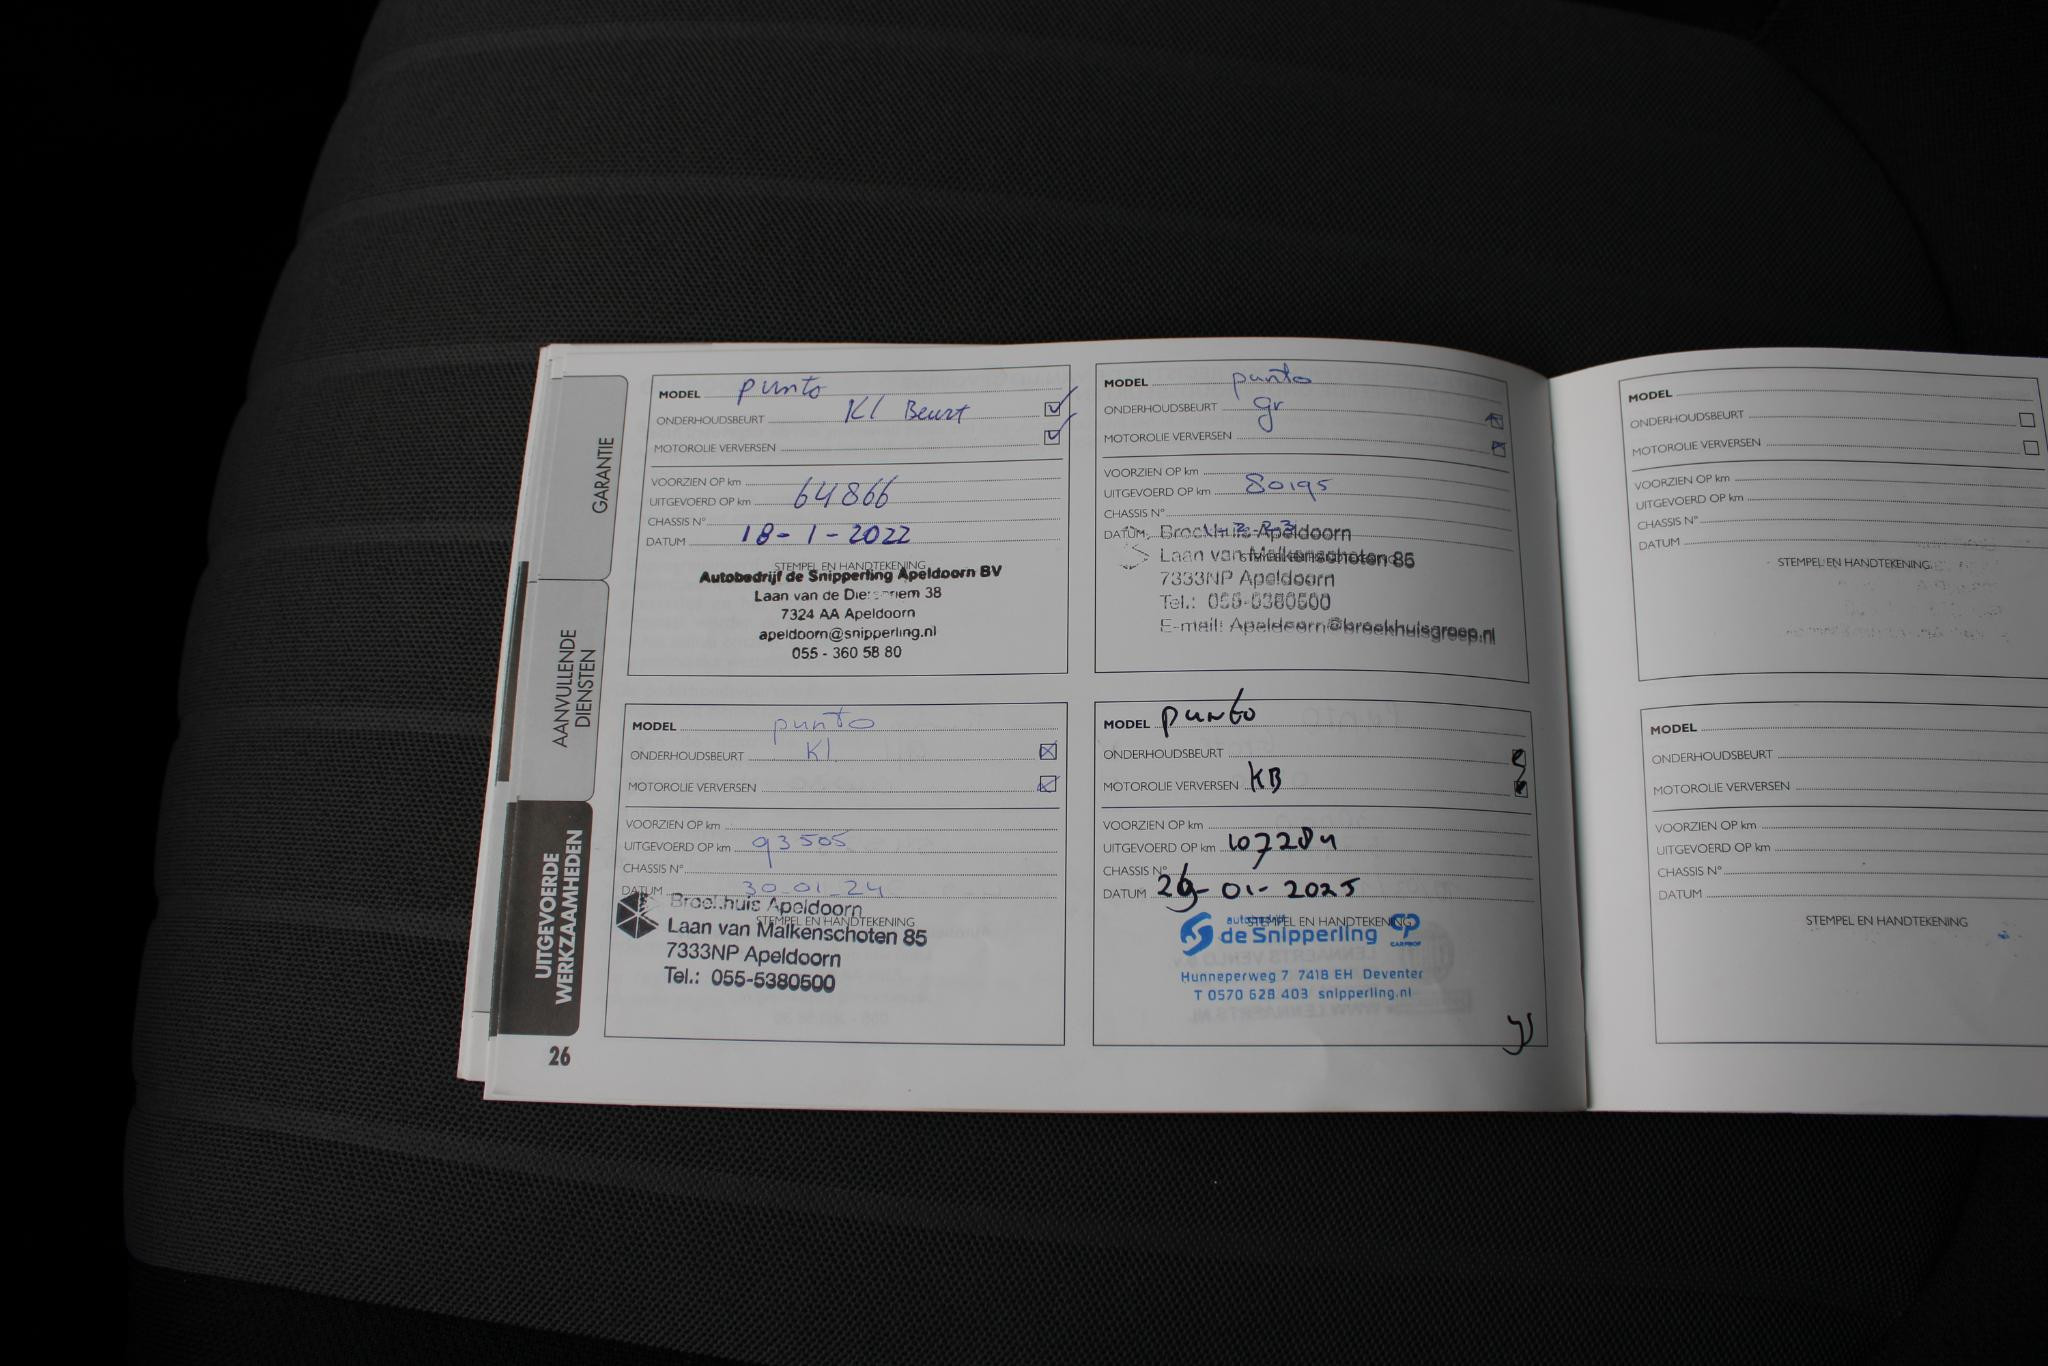 GARANTIE
AANVULLENDE
DIENSTEN
UITGEVOERDE
WERKZAAMHEDEN
26
MODEL punto
ONDERHOUDSBEURT Kl Beurt
MOTOROLIE VERVERSEN
VOORZIEN OP km
UITGEVOERD OP km 64866
CHASSIS N°
DATUM 18-1-2022
STEMPEL EN HANDTEKENING
Autobedrijf de Snipperling Apeldoorn BV
Laan van de 38
7324 AA Apeldoorn
apeldoorn@snipperling.nl
055 - 360 58 80
MODEL punto
ONDERHOUDSBEURT gr
MOTOROLIE VERVERSEN
VOORZIEN OP km
UITGEVOERD OP km 80195
CHASSIS N°
DATUM
Broekhuis Apeldoorn
Laan van Malkenschoten 85
7333NP Apeldoorn
Tel.: 055-5380500
E-mail: Apeldoorn@broekhuisgroep.nl
MODEL punto
ONDERHOUDSBEURT Kl
MOTOROLIE VERVERSEN
VOORZIEN OP km
UITGEVOERD OP km 93505
CHASSIS N°
DATUM 30-01-24
STEMPEL EN HANDTEKENING
Broekhuis Apeldoorn
Laan van Malkenschoten 85
7333NP Apeldoorn
Tel.: 055-5380500
MODEL punto
ONDERHOUDSBEURT
MOTOROLIE VERVERSEN KB
VOORZIEN OP km
UITGEVOERD OP km 107284
CHASSIS N°
DATUM 01-2025
STEMPEL EN HANDTEKENING
autobedrijf
de Snipperling CP
CARPROF
Hunneperweg 7 7418 EH Deventer
T 0570 628 403 snipperling.nl
MODEL
ONDERHOUDSBEURT
MOTOROLIE VERVERSEN
VOORZIEN OP km
UITGEVOERD OP km
CHASSIS N°
DATUM
STEMPEL EN HANDTEKENING
MODEL
ONDERHOUDSBEURT
MOTOROLIE VERVERSEN
VOORZIEN OP km
UITGEVOERD OP km
CHASSIS N°
DATUM
STEMPEL EN HANDTEKENING